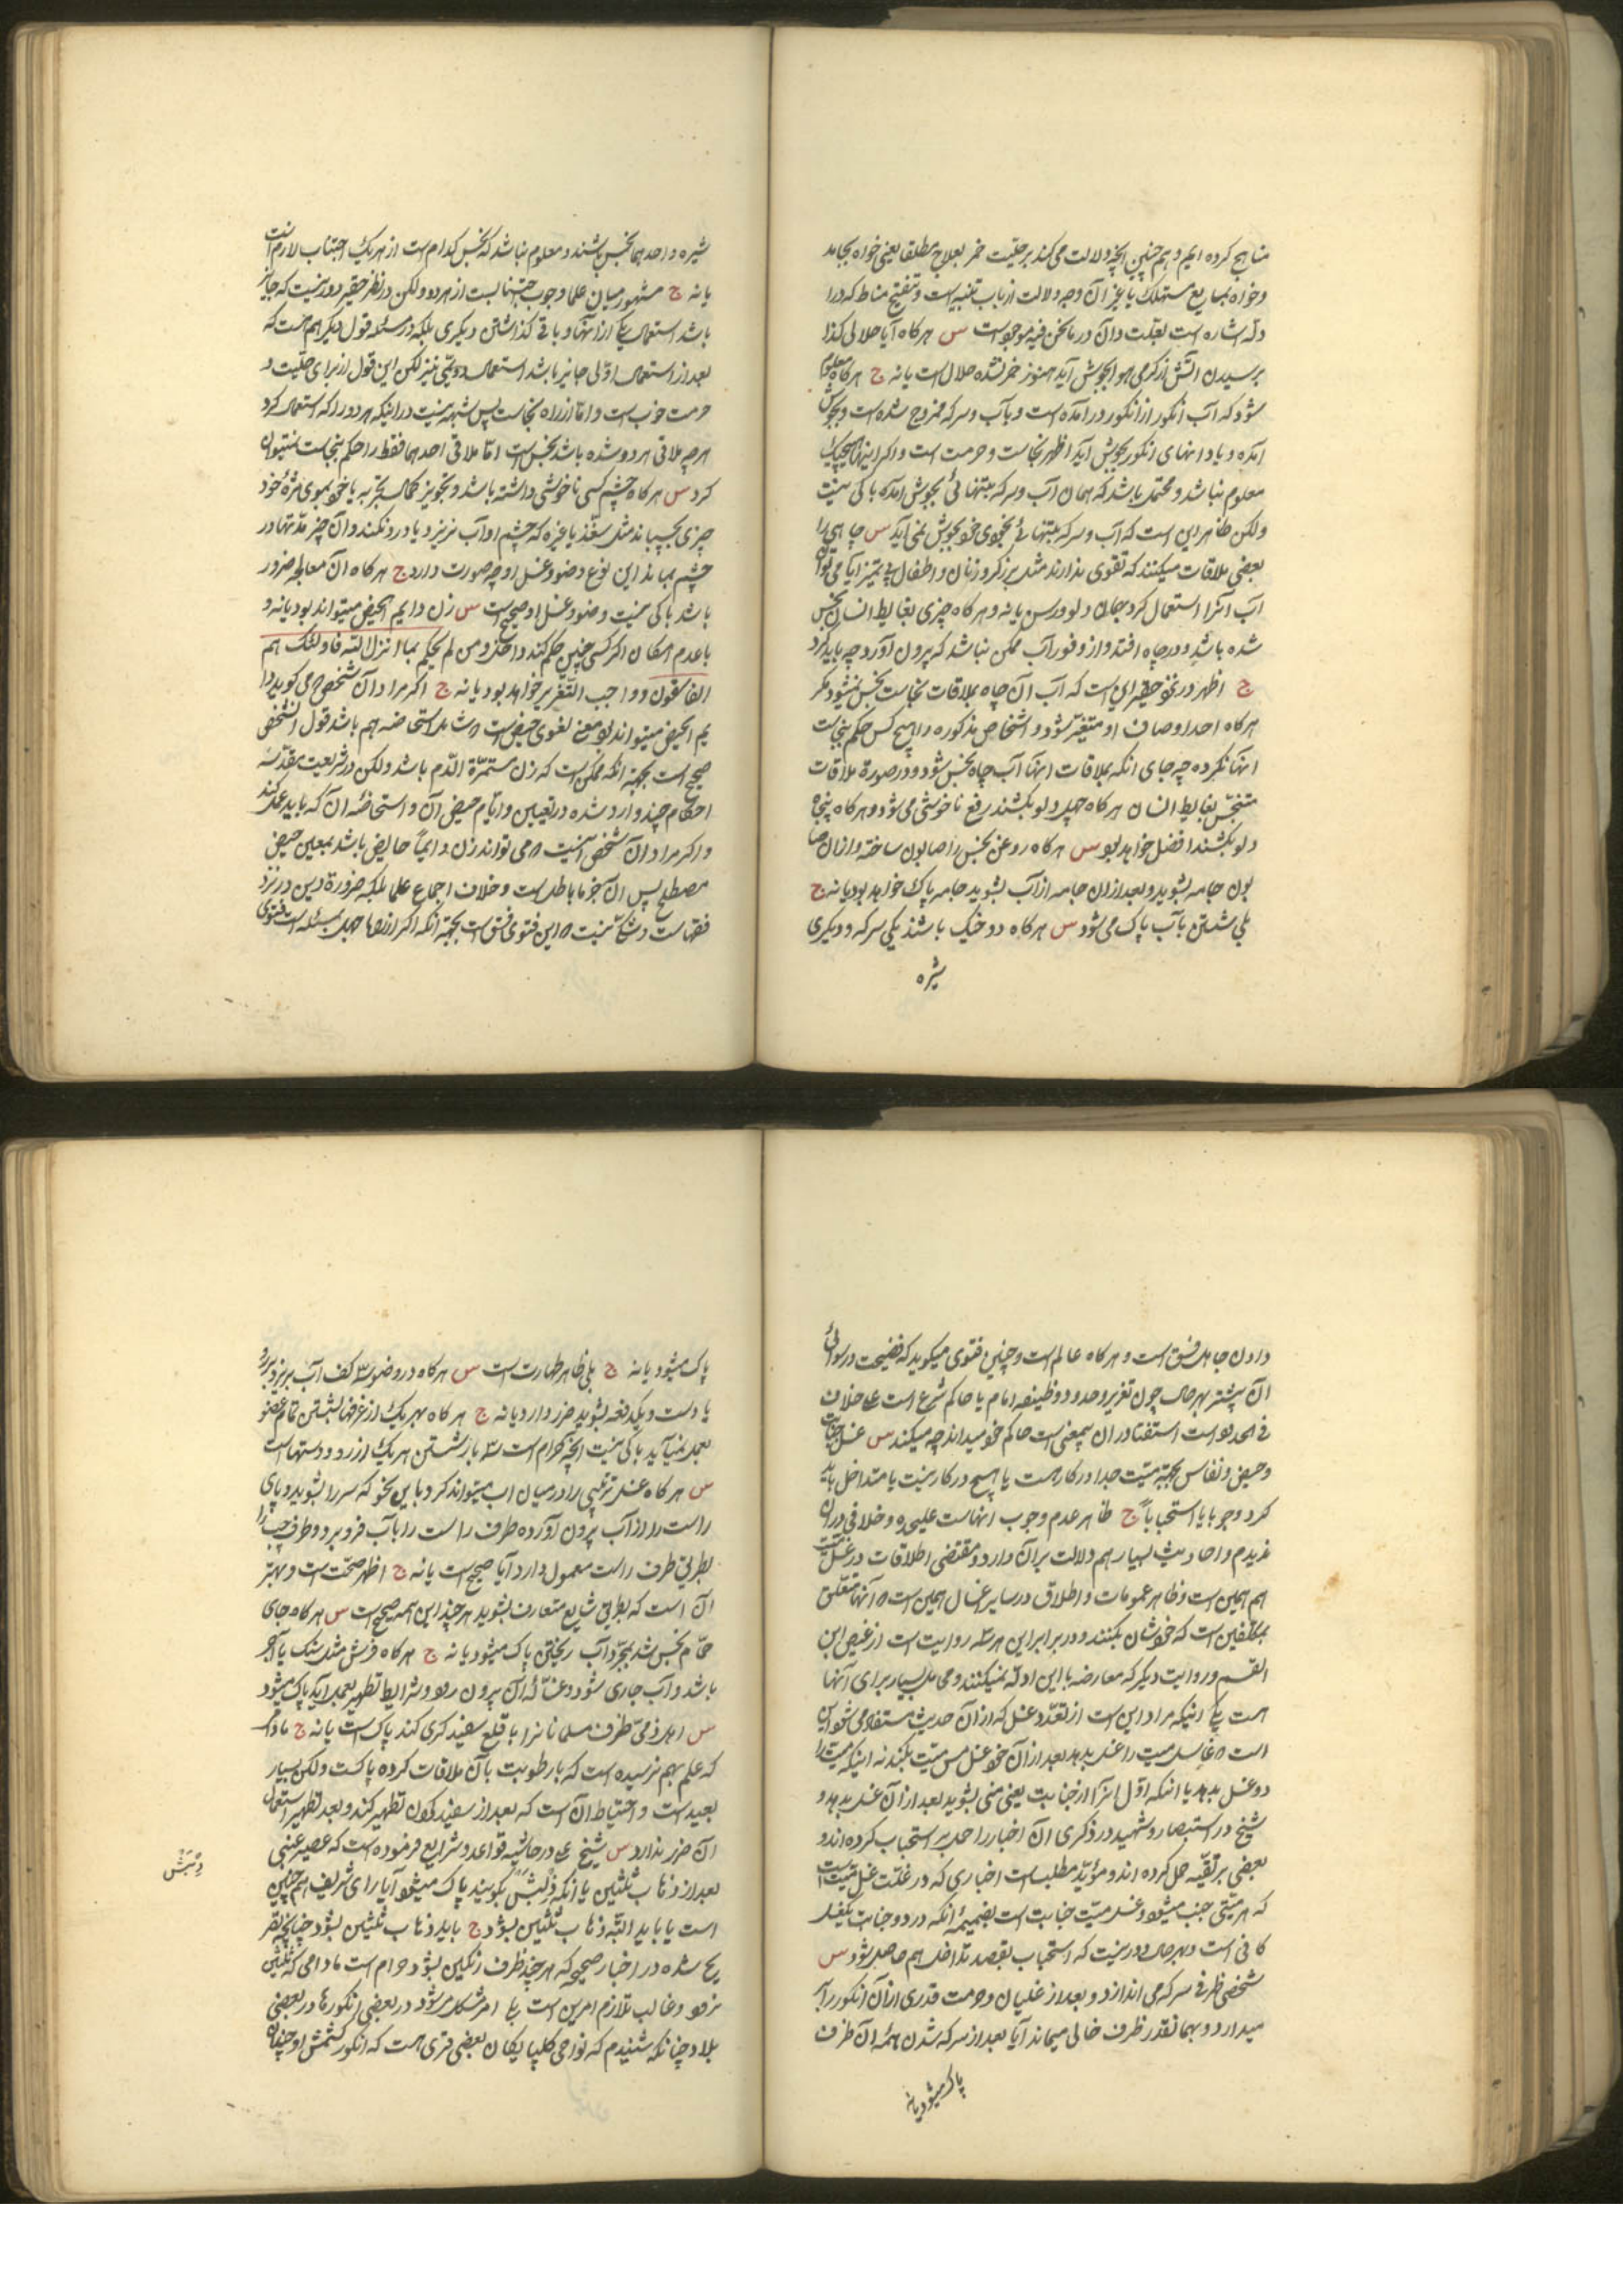 مناهج کرده ایم و هم چنین آنچه دلالت می کند بر حلیت خمر بعلاج مطلقا یعنی خواه بجامد
و خواه بمایع مستهلک یا غیر آن وجه دلالت از باب تنبیه است و تنقیح مناط که در ا
دله اشاره است بعلت و آن در ما نحن فیه موجود است س هر گاه آیا حلالی کذا
برسیدن آتش از گرمی هوا بجوش آید هنوز خمر نشده حلال است یا نه ج هر گاه معلوم
شود که آب انگور از انگور در آمده است و با آب و سرکه ممزوج شده است و بجوش
آمده و یا دانهای انگور بجوش آید اظهر نجاست و حرمت است و اگر اینها هیچیک
معلوم نباشد و محتمل باشد که همان آب و سرکه بتنهائی بجوش آمده باکی نیست
ولکن ظاهر این است که آب و سرکه بتنهائی بخودی خود بجوش نمی آید س چاهی را
بعضی ملاقات میکنند که تقوی ندارند مثل برزگر و زنان و اطفال بی تمیز آیا می توان
آب آنرا استعمال کرد بجان و لو و رسن یا نه و هر گاه چیزی بغایط انسان نجس
شده باشد و در چاه افتد و از وفور آب ممکن نباشد که بیرون آورد چه باید کرد
ج اظهر در نحو حقیر این است که آب آن چاه بملاقات نجاست نجس نمیشود مگر
هر گاه احد اوصاف او متغیر شود و اشخاص مذکوره را هیچ کس حکم بنجاست
آنها نکرده چه جای آنکه بملاقات آنها آب چاه نجس شود و در صورة ملاقات
متنجس بغایط انسان هر گاه چهل دلو بکشند رفع ناخوشی می شود و هر گاه پنجاه
دلو بکشند افضل خواهد بود س هر گاه روغن نجس را صابون ساخته و از آن صا
بون جامه بشوید و بعد از آن جامه از آب بشوید جامه پاک خواهد بود یا نه ج
بلی شستن با آب پاک می شود س هر گاه دو خیک باشند یکی سرکه و دیگری
شیره
شیره و احدهما نجس باشند و معلوم نباشد که نجس کدام است از هر یک اجتناب لازم است
یا نه ج مشهور میان علما وجوب اجتنابست از هر دو ولکن در نظر حقیر دور نیست که جایز
باشد استعمال یکی از آنها و باقی گذاشتن دیگری بلکه در مسئله قول دیگر هم هست که
بعد از استعمال اوّلی جایز باشد استعمال دویمی نیز لکن این قول از برای حلیت و
حرمت خوب است و امّا از راه نجاست پس شبهه نیست در اینکه هر دو را که استعمال کرد
هر چه ملاقی هر دو شده باشد نجس است امّا ملاقی احدهما فقط را حکم بنجاست نمیتوان
کرد س هر گاه چشم کسی ناخوشی داشته باشد و بتجویز کحال بتجربه یا خود بموی مژهٔ خود
چیزی بچسباند مثل سقّز یا غیره که چشم او آب نریزد و یا درد نکند و آن چیز مدتها در
چشم بماند این نوع وضو و غسل او چه صورت دارد ج هر گاه آن معالجه ضرور
باشد باکی نیست وضو و غسل او صحیح است س زن دایم الحیض میتواند بود یا نه و
با عدم امکان اگر کسی چنین حکم کند داخل و من لم یحکم بما انزل الله فاولئک هم
الفاسقون و واجب التعزیر خواهد بود یا نه ج اگر مراد آن شخص که می گوید دا
یم الحیض میتواند بود معنی لغوی حیض است که شامل استحاضه هم باشد قول آنشخص
صحیح است بجهة آنکه ممکن است که زن مستمرّة الدّم باشد ولکن در شریعت مقدّسه
احکام چند وارد شده در تعیین و ایّام حیض آن و استحاضه آن که باید عمل کند
و اگر مراد آن شخص آنست که می تواند زن دایماً حایض باشد بمعنی حیض
مصطلح پس آن جزما باطل است و خلاف اجماع علما بلکه ضرورة دین در نزد
فقهاست و شکّ نیست که این فتوی فسق است بجهة آنکه اگر از راه جهل بمسئله است فتوی
دادن جاهل فسق است و هر گاه عالم است و چنین فتوی میگوید که فضیحت و رسوائی
آن بیشتر بهر حال چون تعزیر و حدود وظیفه امام یا حاکم شرع است علی خلاف
فی الحدود است استفتا در آن بیمعنی است حاکم خود میداند چه میکند س غسل جنابت
و حیض و نفاس بجهة میّت جدا در کار هست یا هیچ در کار نیست یا متداخل باید
کرد وجوبا یا استحبابا ج ظاهر عدم وجوب آنهاست علیحده و خلافی در آن
ندیدم و احادیث بسیار هم دلالت بر آن دارد و مقتضی اطلاقات در غسل میّت
هم همین است و ظاهر عمومات و اطلاق در سایر اغسال همین است که آنها متعلق
بمکلفین است که خودشان بکنند و در برابر این هر سه روایت است از عیص ابن
القسم و روایت دیگر که معارضه با این ادله نمیکنند و محامل بسیار برای آنها
هست یکی اینکه مراد این است از تعدّد غسل که از آن حدیث مستفاد می شود این
است که غاسل میت را غسل بدهد بعد از آن خود غسل مس میّت بکند نه اینکه میّت را
دو غسل بدهد یا اینکه اوّل آنرا از جنابت یعنی منی بشوید بعد از آن غسل بدهد و
شیخ در استبصار و شهید در ذکری آن اخبار را حمل بر استحباب کرده اند و
بعضی بر تقیّه حمل کرده اند و مؤیّد مطلب است اخباری که در علّت غسل میّت است
که هر میّتی جنب میشود و غسل میّت جنابت است بضمیمهٔ آنکه در دو جنابت یکغسل
کافی است و بهر حال دور نیست که استحباب بقصد تداخل هم حاصل شود س
شخصی ظرفی سرکه می اندازد و بعد از غلیان و حرمت قدری از آن انگور را بر
میدارد و بهمانقدر ظرف خالی میماند آیا بعد از سرکه شدن همهٔ آن ظرف
پاک میشود یا نه
پاک میشود یا نه ج بلی ظاهر طهارت است س هر گاه در وضو سه کف آب بریزد بر رو
یا دست و یکدفعه بشوید ضرر دارد یا نه ج هر گاه بهر یک از غرفها شستن تمام عضو
بعمل نمیآید باکی نیست آنچه حرام است سه بار شستن هر یک از رو و دستهاست
س هر گاه غسل ترتیبی را در میان آب میتواند کرد باین نحو که سر را بشوید و پای
راست را از آب بیرون آورده طرف راست را بآب فرو برد و طرف چپ را
بطریق طرف راست معمول دارد آیا صحیح است یا نه ج اظهر صحّت است و بهتر
آن است که بطریق شایع متعارف بشوید هر چند این همه صحیح است س هر گاه جای
حمّام نجس شد بمجرّد آب ریختن پاک میشود یا نه ج هر گاه فرش مثل سنگ یا آجر
باشد و آب جاری شود و غسّالهٔ آن بیرون رود و شرایط تطهیر بعمل آید پاک میشود
س اهل ذمّی ظرف مسلمانانرا با قلع سفید گری کند پاک است یا نه ج مادام
که علم بهم نرسیده است که با رطوبت بآن ملاقات کرده پاکست ولکن بسیار
بعید است و احتیاط آن است که بعد از سفید کردن تطهیر کند و بعد تطهیر استعمال
آن ضرر ندارد س شیخ علی در حاشیه قواعد و شرایع فرموده است که عصیر عنبی
بعد از ذهاب ثلثین یا آنکه دِبْش بگویند پاک میشود آیا رای شریف هم چنین
است یا باید البتّه ذهاب ثلثین بشود ج باید ذهاب ثلثین بشود چنانچه تصر
یح شده در اخبار صحیحه که هر چند ظرف رنگین بشود حرام است مادامی که ثلثین
نرود و غالب تلازم امرین است بما امر مشکل میشود در بعضی انگورها در بعضی
بلاد چنانکه شنیدم که نواحی گلپایگان بعضی قری هست که انگور کشمش او چنان